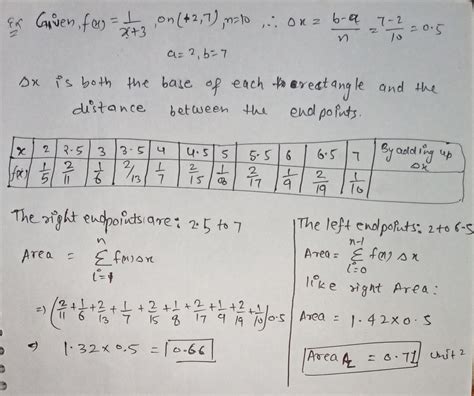 Ex Given, f(x) = 1/x+3, on (+2,7), n=10, ∴ Δx = b-a/n = 7-2/10 = 0.5
a=2, b=7
Δx is both the base of each rectangle and the
distance between the endpoints.
x | 2 | 2.5 | 3 | 3.5 | 4 | 4.5 | 5 | 5.5 | 6 | 6.5 | 7 | By adding up Δx
f(x) | 1/5 | 2/11 | 1/6 | 2/13 | 1/7 | 2/15 | 1/8 | 2/17 | 1/9 | 2/19 | 1/10
The right endpoints are: 2.5 to 7
Area = n Σ i=1 f(x) Δx
⇒ (2/11 + 1/6 + 2/13 + 1/7 + 2/15 + 1/8 + 2/17 + 1/9 + 2/19 + 1/10) 0.5
⇒ 1.32 x 0.5 = 0.66
The left endpoints: 2 to 6.5
Area = n-1 Σ i=0 f(x) Δx
like right Area:
Area = 1.42 x 0.5
Area A_L = 0.71 unit²